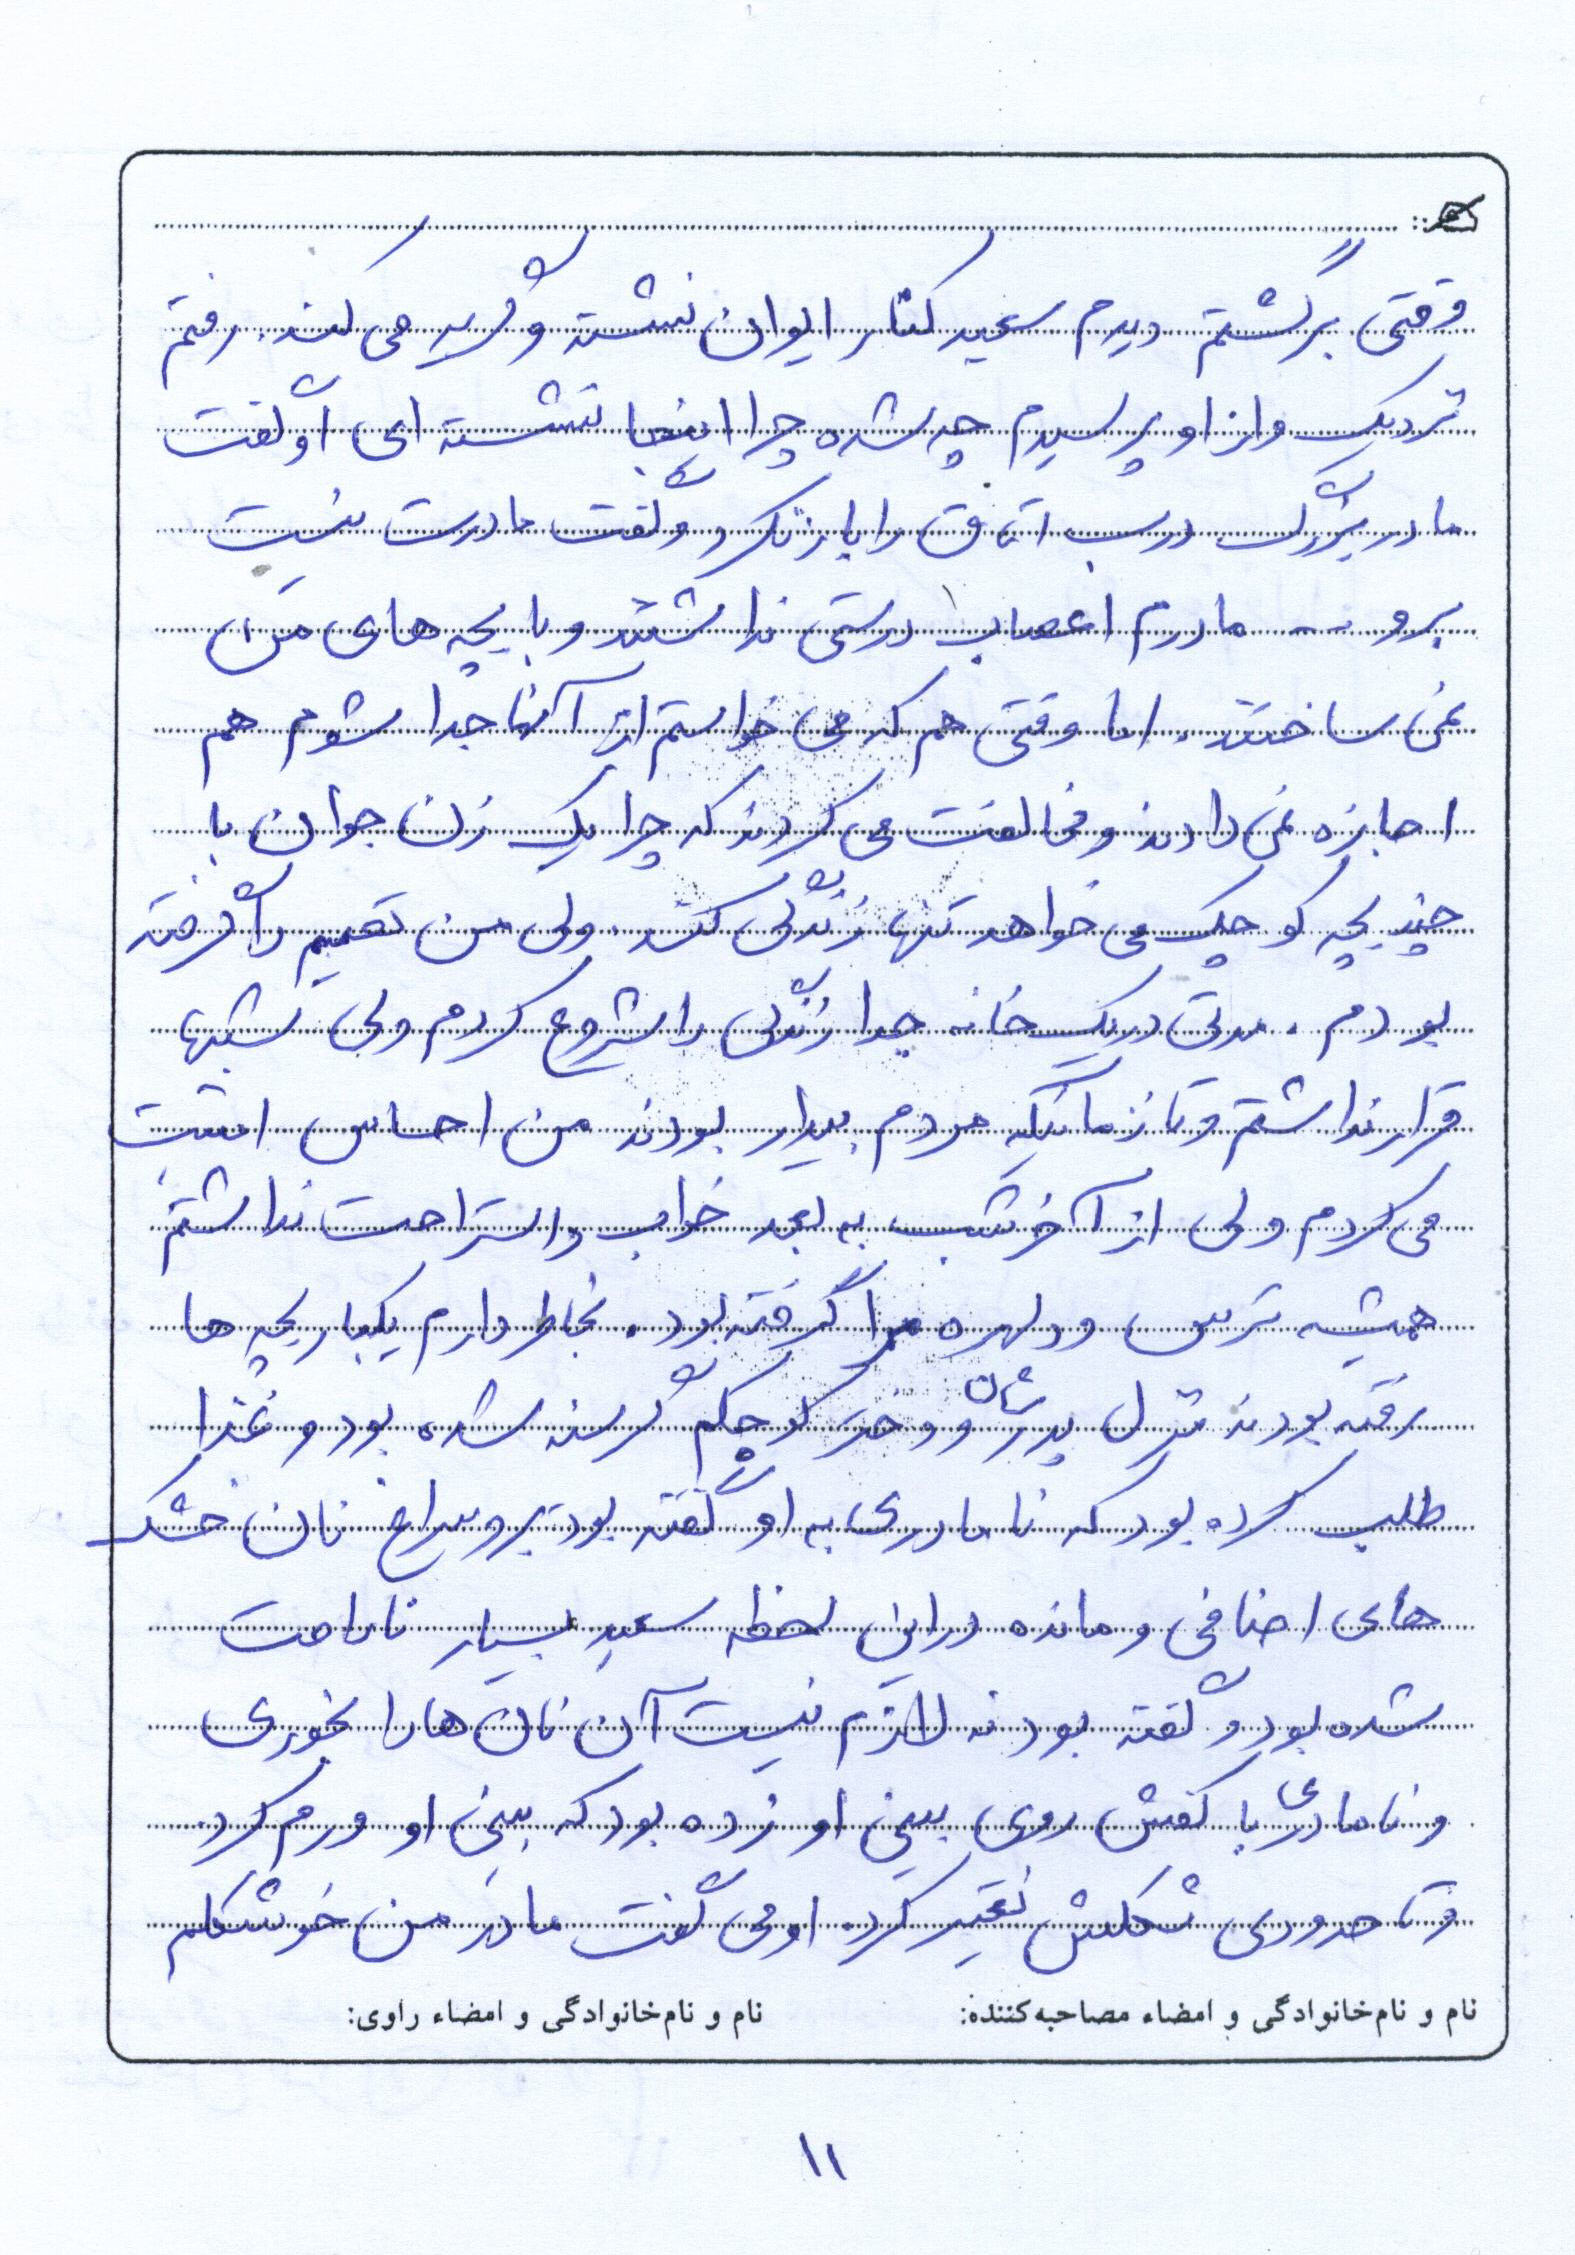 وقتی برگشتم دیدم سعید کنار ایوان نشسته و گریه می کند. رفتم
نزدیک و از او پرسیدم چه شده چرا اینجا نشسته ای او گفت
مادر بزرگ درب اتاق را باز نکرد و گفت مادرت نیست
برو – مادرم اعصاب درستی نداشتند و با بچه های من
نمی ساختند. اما وقتی هم که می خواستم از آنها جدا شوم هم
اجازه نمی دادند و مخالفت می کردند که چرا یک زن جوان با
چند بچه کوچک می خواهد تنها زندگی کند. ولی من تصمیم را گرفته
بودم. مدتی در یک خانه جدا زندگی را شروع کردم ولی شبها
قرار نداشتم و تا زمانیکه مردم بیدار بودند من احساس امنیت
می کردم ولی از آخر شب به بعد خواب و استراحت نداشتم
همیشه ترس و دلهره مرا گرفته بود. بخاطر دارم یکبار بچه ها
رفته بودند منزل پدرشان و دختر کوچکم گرسنه شده بود و غذا
طلب کرده بود که نامادری به او گفته بود برو سراغ نان خشک
های اضافی و مانده در این لحظه سعید بسیار ناراحت
شده بود و گفته بود نه لازم نیست آن نان ها را بخوری
و نامادری با کفش روی بینی او زده بود که بینی او ورم کرد.
و تا حدودی شکلش تغییر کرد. او می گفت مادر من خوشگلم
نام و نام‌خانوادگی و امضاء مصاحبه‌کننده: نام و نام‌خانوادگی و امضاء راوی:
۱۱